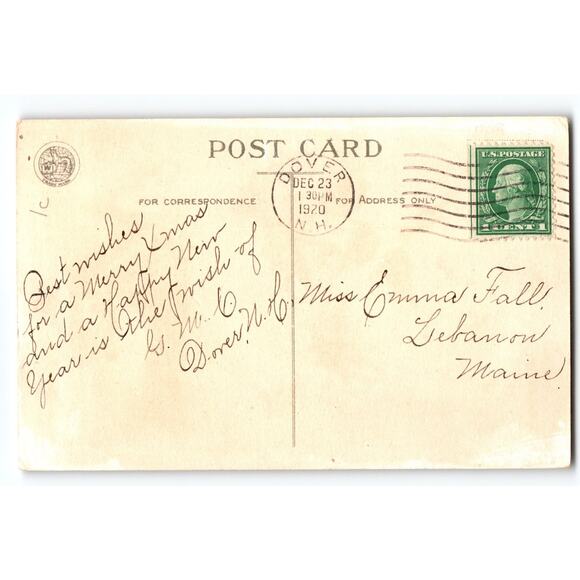 POST CARD
U.S. POSTAGE
1 CENTS 1
DOVER
DEC 23
1 30PM
1920
N.H.
1c
FOR CORRESPONDENCE
FOR ADDRESS ONLY
Best wishes
for a Merry Xmas
and a Happy New
Year is the wish of
G. M. C
Dover, N.H.
Miss Emma Fall,
Lebanon
Maine